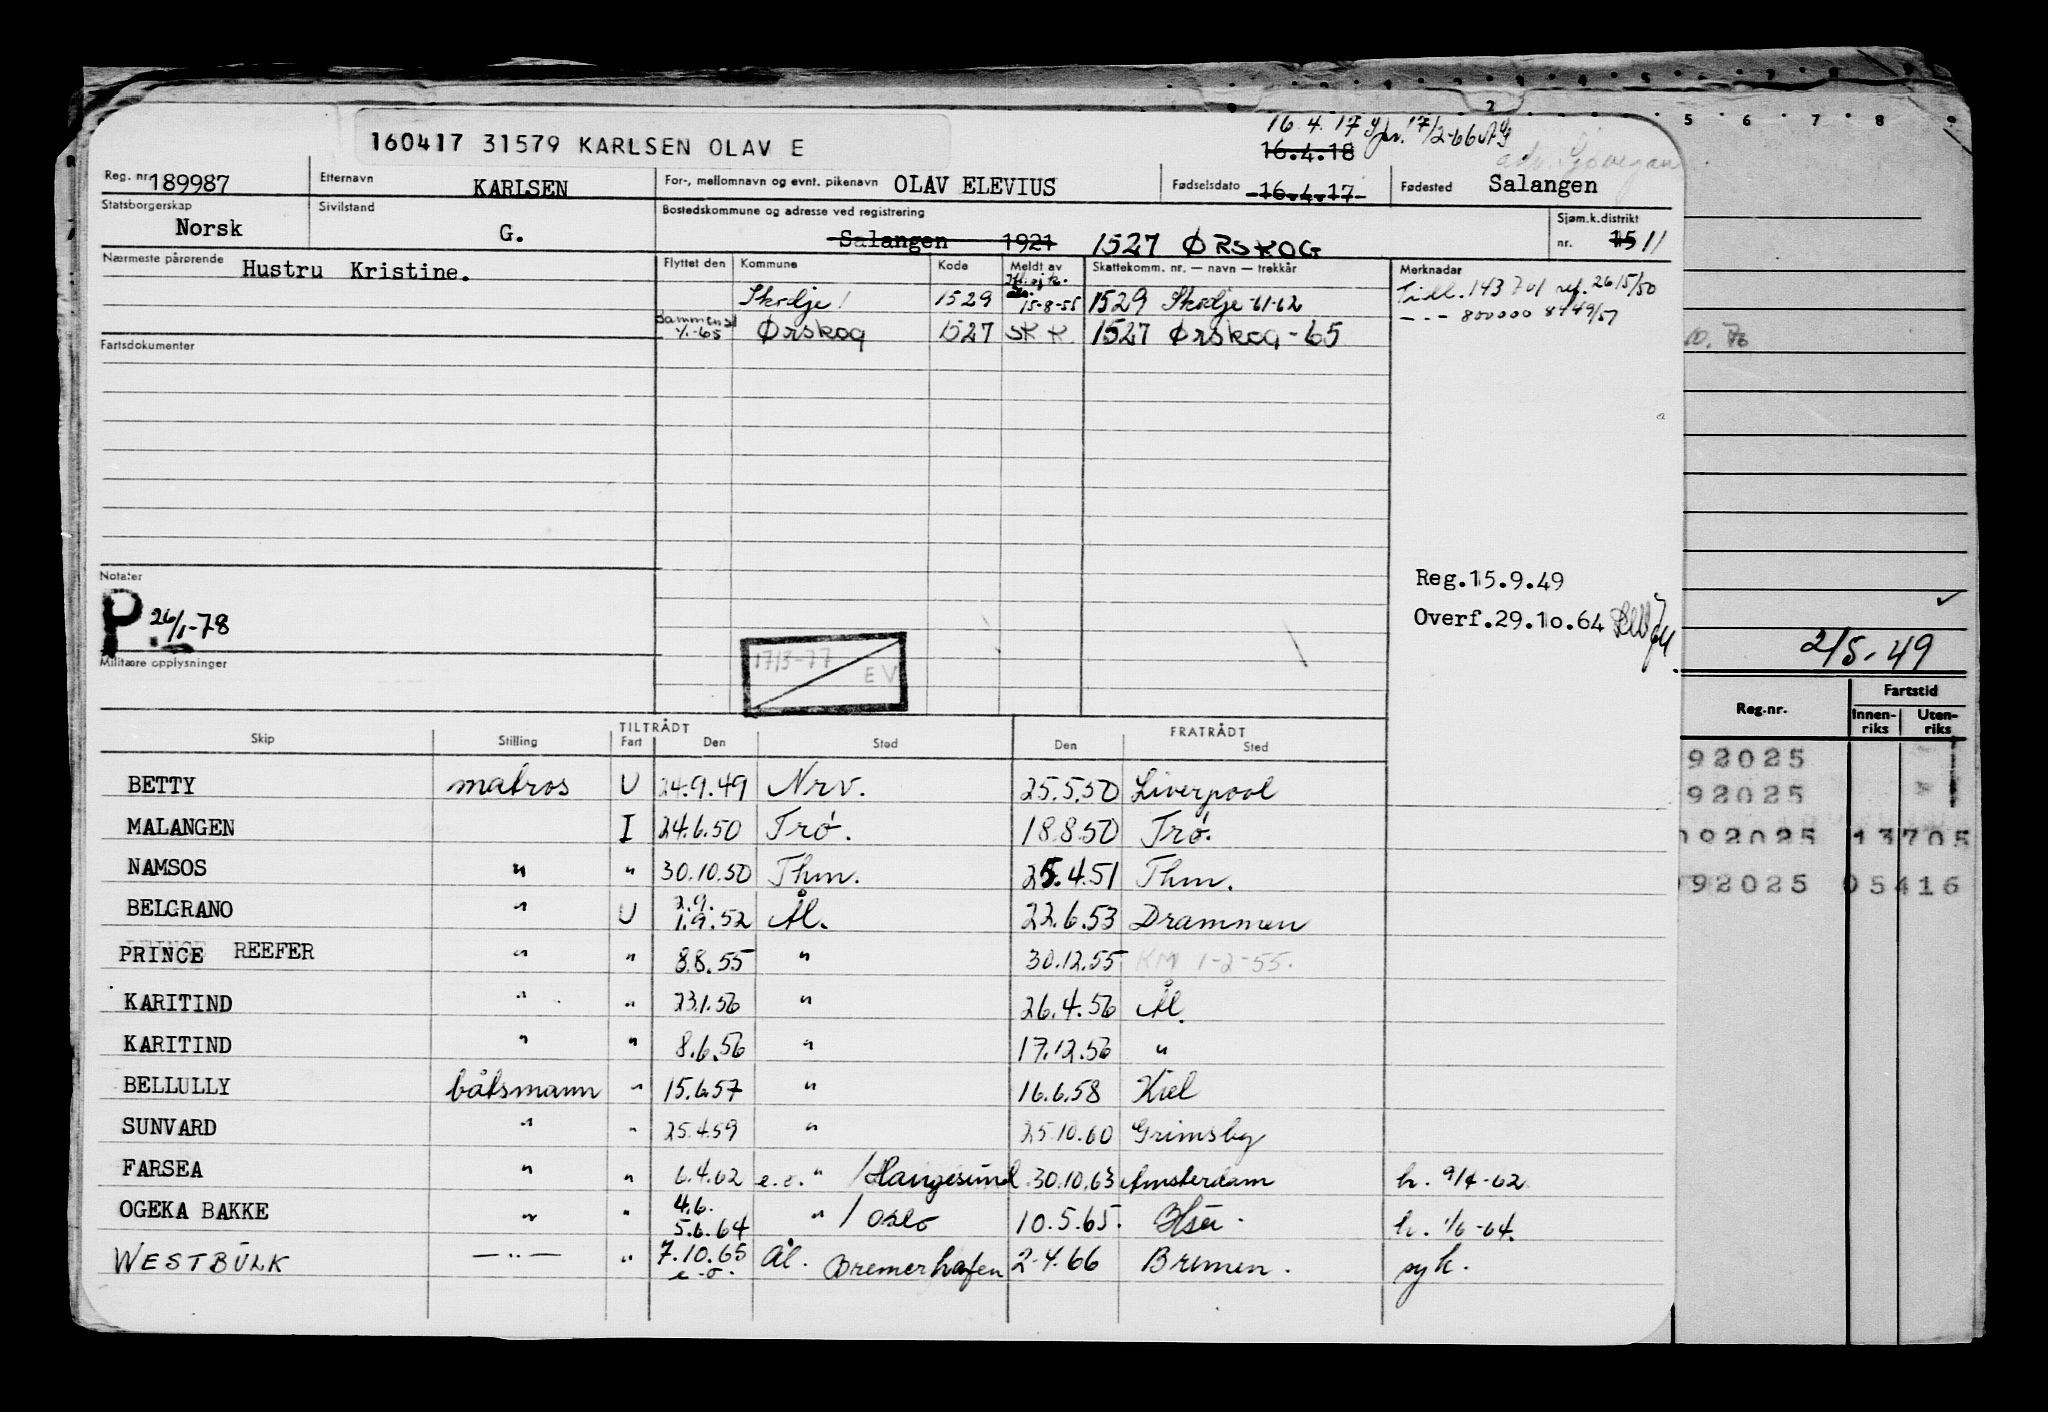 2 5 6 7 8
16.4.17 17/2-66
160417 31579 KARLSEN OLAV E 16.4.18
Reg. nr. 189987 Etternavn KARLSEN For-, mellomnavn og evnt. pikenavn OLAV ELEVIUS Fødselsdato 16.4.17 Fødested Salangen
Statsborgerskap Norsk Sivilstand G. Bostedskommune og adresse ved registrering Salangen 1921 1527 ØRSKOG Sjøm.k.distrikt nr. 15 11
Nærmeste pårørende Hustru Kristine. Flyttet den Kommune Kode Meldt av Skattekomm. nr. — navn — trekkår Merknader
Skodje! 1529 15-8-55 1529 Skodje-61-62 Till. 143701 ref. 26/5/50
1/1-65 Ørskog 1527 SK.K. 1527 Ørskog-65 -"- 800000
Fartsdokumenter
10. 76
Reg.15.9.49
Notater
P 26/1-78
Overf.29.10.64
17/3-77 EV
Militære opplysninger
2/5-49
Reg.nr. Fartstid Innen-riks Uten-riks
TILTRÅDT FRATRÅDT
Skip Stilling Fart Den Sted Den Sted
BETTY matros U 24.9.49 Nrv. 25.5.50 Liverpool
92025
92025
MALANGEN I 24.6.50 Trø. 18.8.50 Trø.
092025 13705
NAMSOS " " 30.10.50 Thm. 25.4.51 Thm.
92025 05416
BELGRANO " U 2.9. 1.9.52 Ål. 22.6.53 Drammen
PRINCE REEFER " " 8.8.55 " 30.12.55 KM 1-2-55.
KARITIND " " 23.1.56 " 26.4.56 Ål.
KARITIND " " 8.6.56 " 17.12.56 "
BELLULLY båtsmann " 15.6.57 " 16.6.58 Kiel
SUNVARD " " 25.4.59 " 25.10.60 Grimsby
FARSEA " " 6.4.62 e.o. " /Haugesund 30.10.63 Amsterdam h. 9/4-62
OGEKA BAKKE " " 4.6. 5.6.64 " / Oslo 10.5.65. h. 1/6-64.
WESTBULK —"— " 7.10.65 e.o. Ål. Bremerhafen 2.4.66 Bremen. syk.